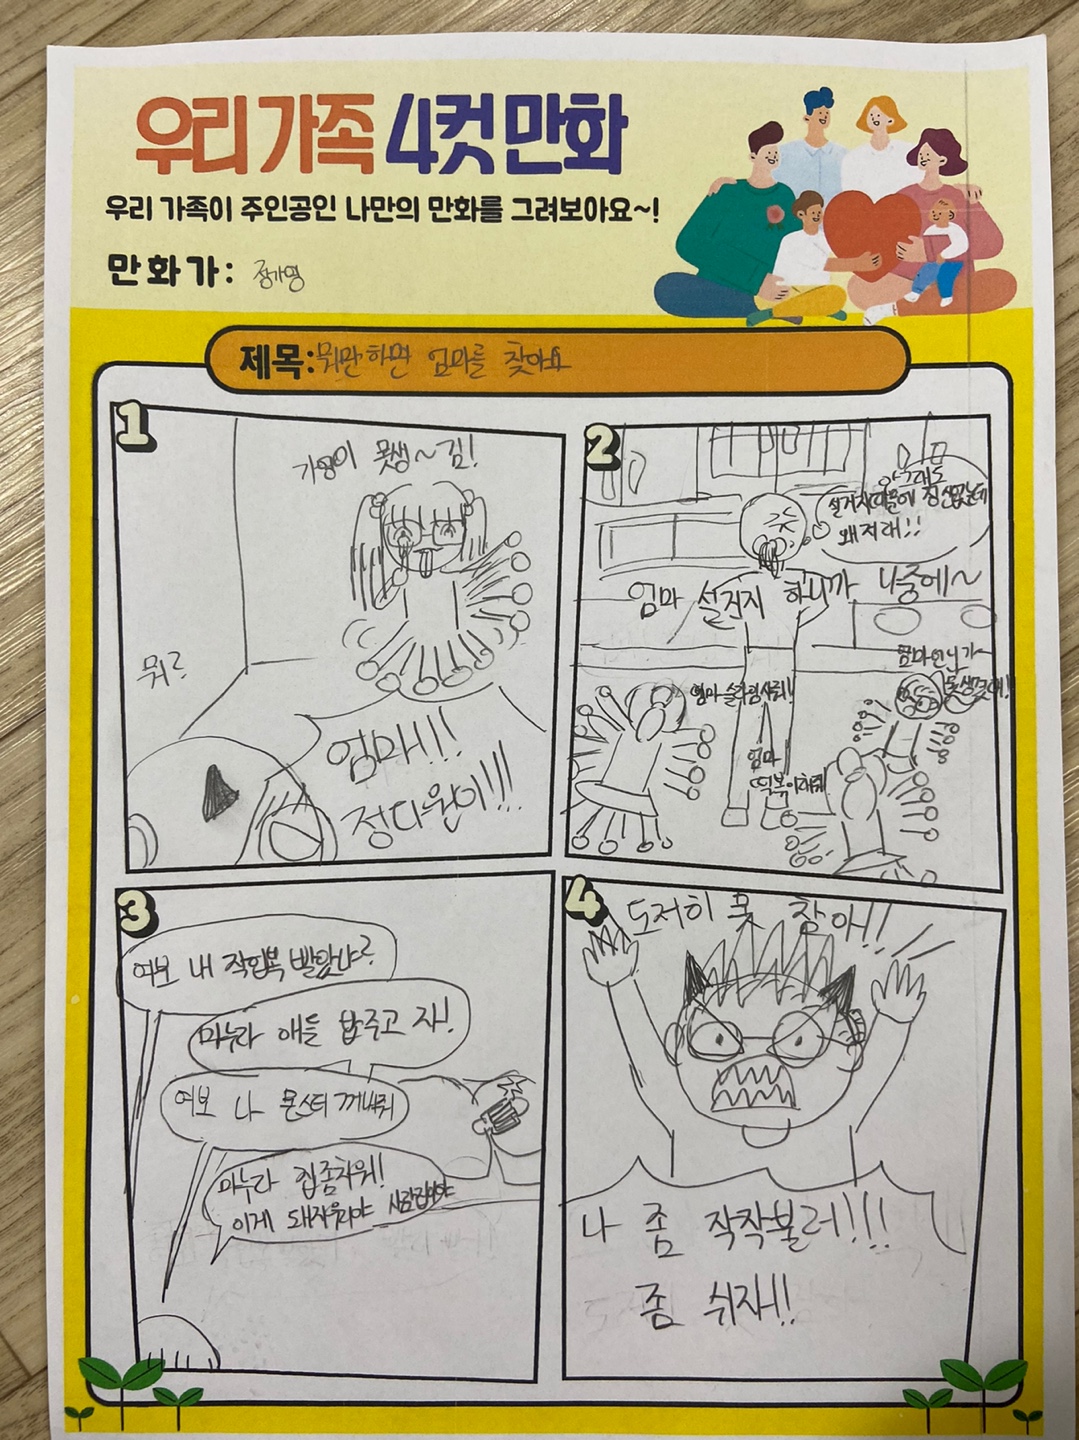 우리 가족 4컷 만화
우리 가족이 주인공인 나만의 만화를 그려보아요~!
만화가: 정가영
제목: 뭐만하면 엄마를 찾아요
1
가영이 못생~김!
뭐?
엄마!!!
정다원이!!!
2
안그래도
설거지때문에 정신없는데
왜저래!!
엄마 설거지 하니까 나중에~
엄마 슬라임사줘!
엄마언니가
못생겼대!
엄마
떡볶이해줘
3
여보 내 작업복 빨았냐?
마누라 애들 밥주고 자!
여보 나 몬스터 꺼내줘
마누라 집좀치워!
이게 돼지우리야 사람집이야
4
도저히 못 참아!!
나 좀 작작불러!!!
좀 쉬자!!